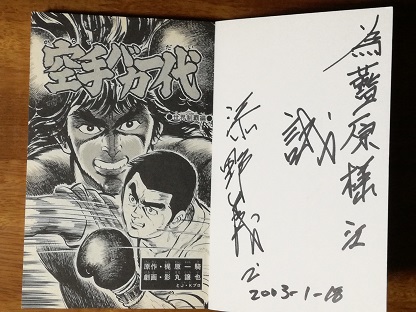 空手バカ一代
原作・梶原一騎
劇画・影丸譲也
為藤原様江
誠
添野義二
2003-1-18